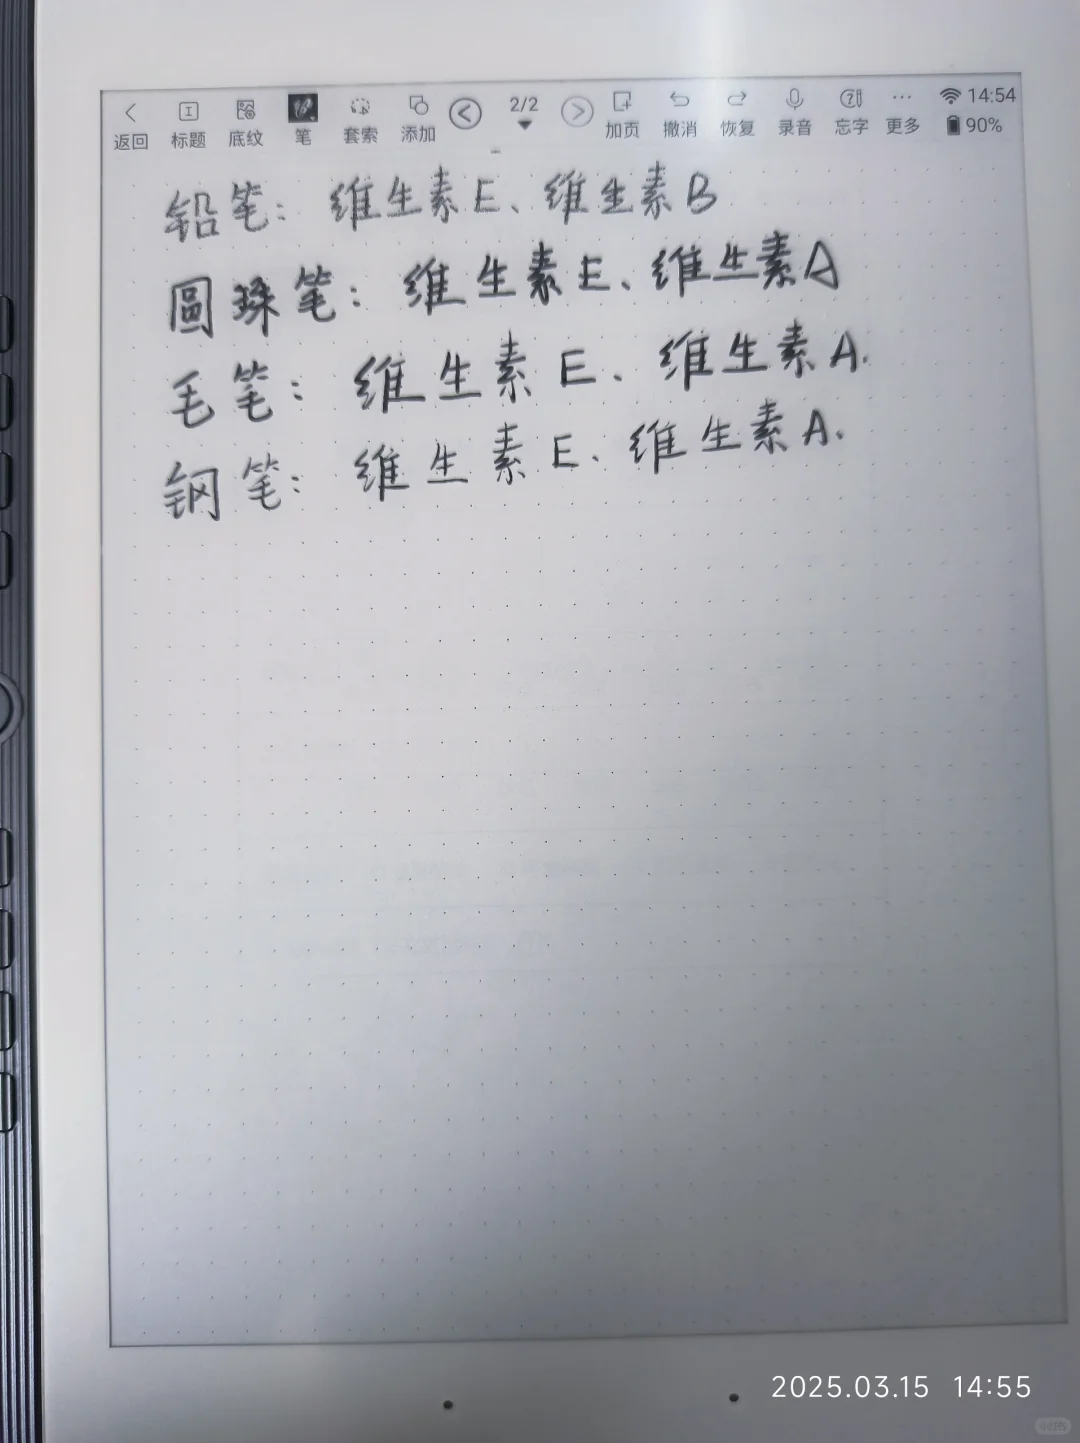 返回 标题 底纹 笔 套索 添加 2/2 加页 撤消 恢复 录音 忘字 更多 14:54 90%
铅笔：维生素E、维生素B
圆珠笔：维生素E、维生素A
毛笔：维生素E、维生素A.
钢笔：维生素E、维生素A.
2025.03.15 14:55